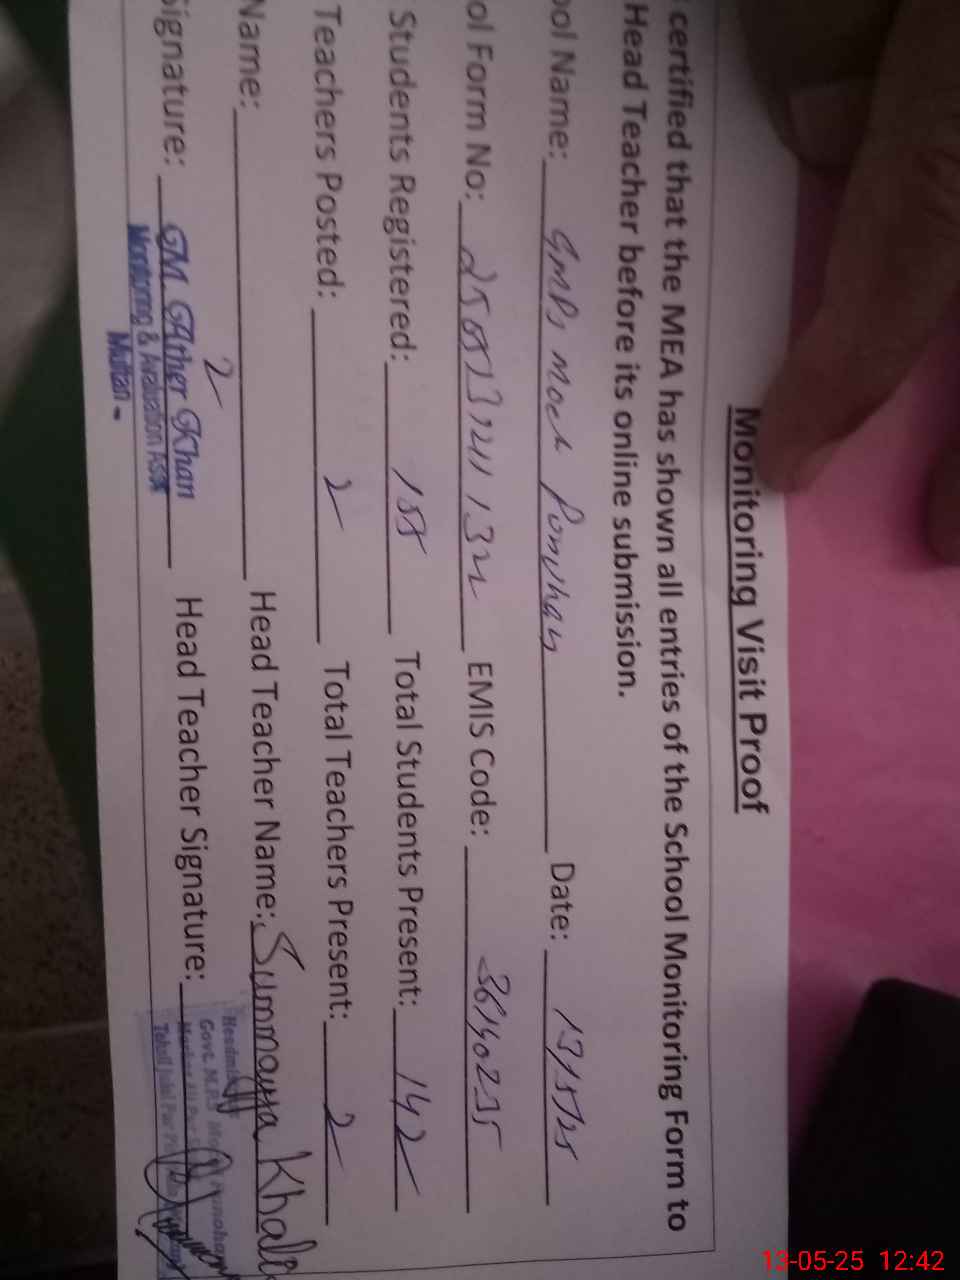 Monitoring Visit Proof
certified that the MEA has shown all entries of the School Monitoring Form to
Head Teacher before its online submission.
ool Name: GMPS Moch Date: 13/5/25
ol Form No: EMIS Code: 36140255
Students Registered: 155 Total Students Present: 142
Teachers Posted: 2 Total Teachers Present: 2
Name: Head Teacher Name: Summayya Khal
Signature: GM Ather Khan Head Teacher Signature:
Monitoring & Evaluation Asst
Multan
Govt. M.P.S
13-05-25 12:42